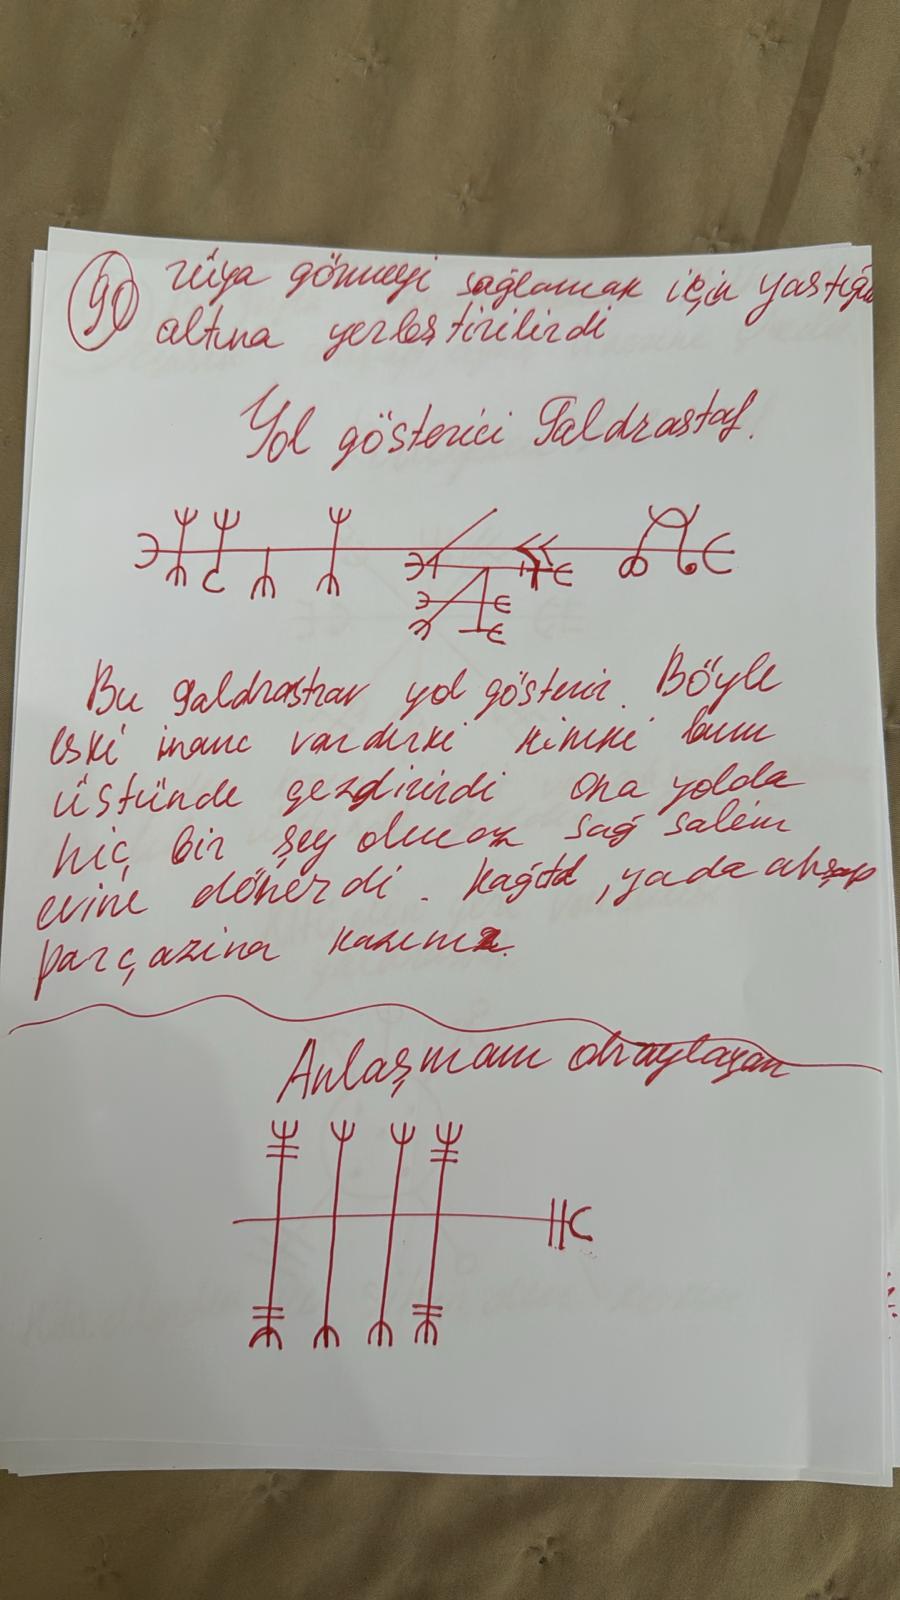 90
rüya görmeyi sağlamak için yastığın
altına yerleştirilirdi
Yol gösterici Galdrastaf.
Bu galdrastrav yol gösterir. Böyle
eski inanc vardırki kimki bunu
üstünde gezdirirdi ona yolda
hiç bir şey olmaz sağ salim
evine dönerdi. kağıtd, yada ahşap
parçazina kazınız.
Anlaşmanı onaylayan